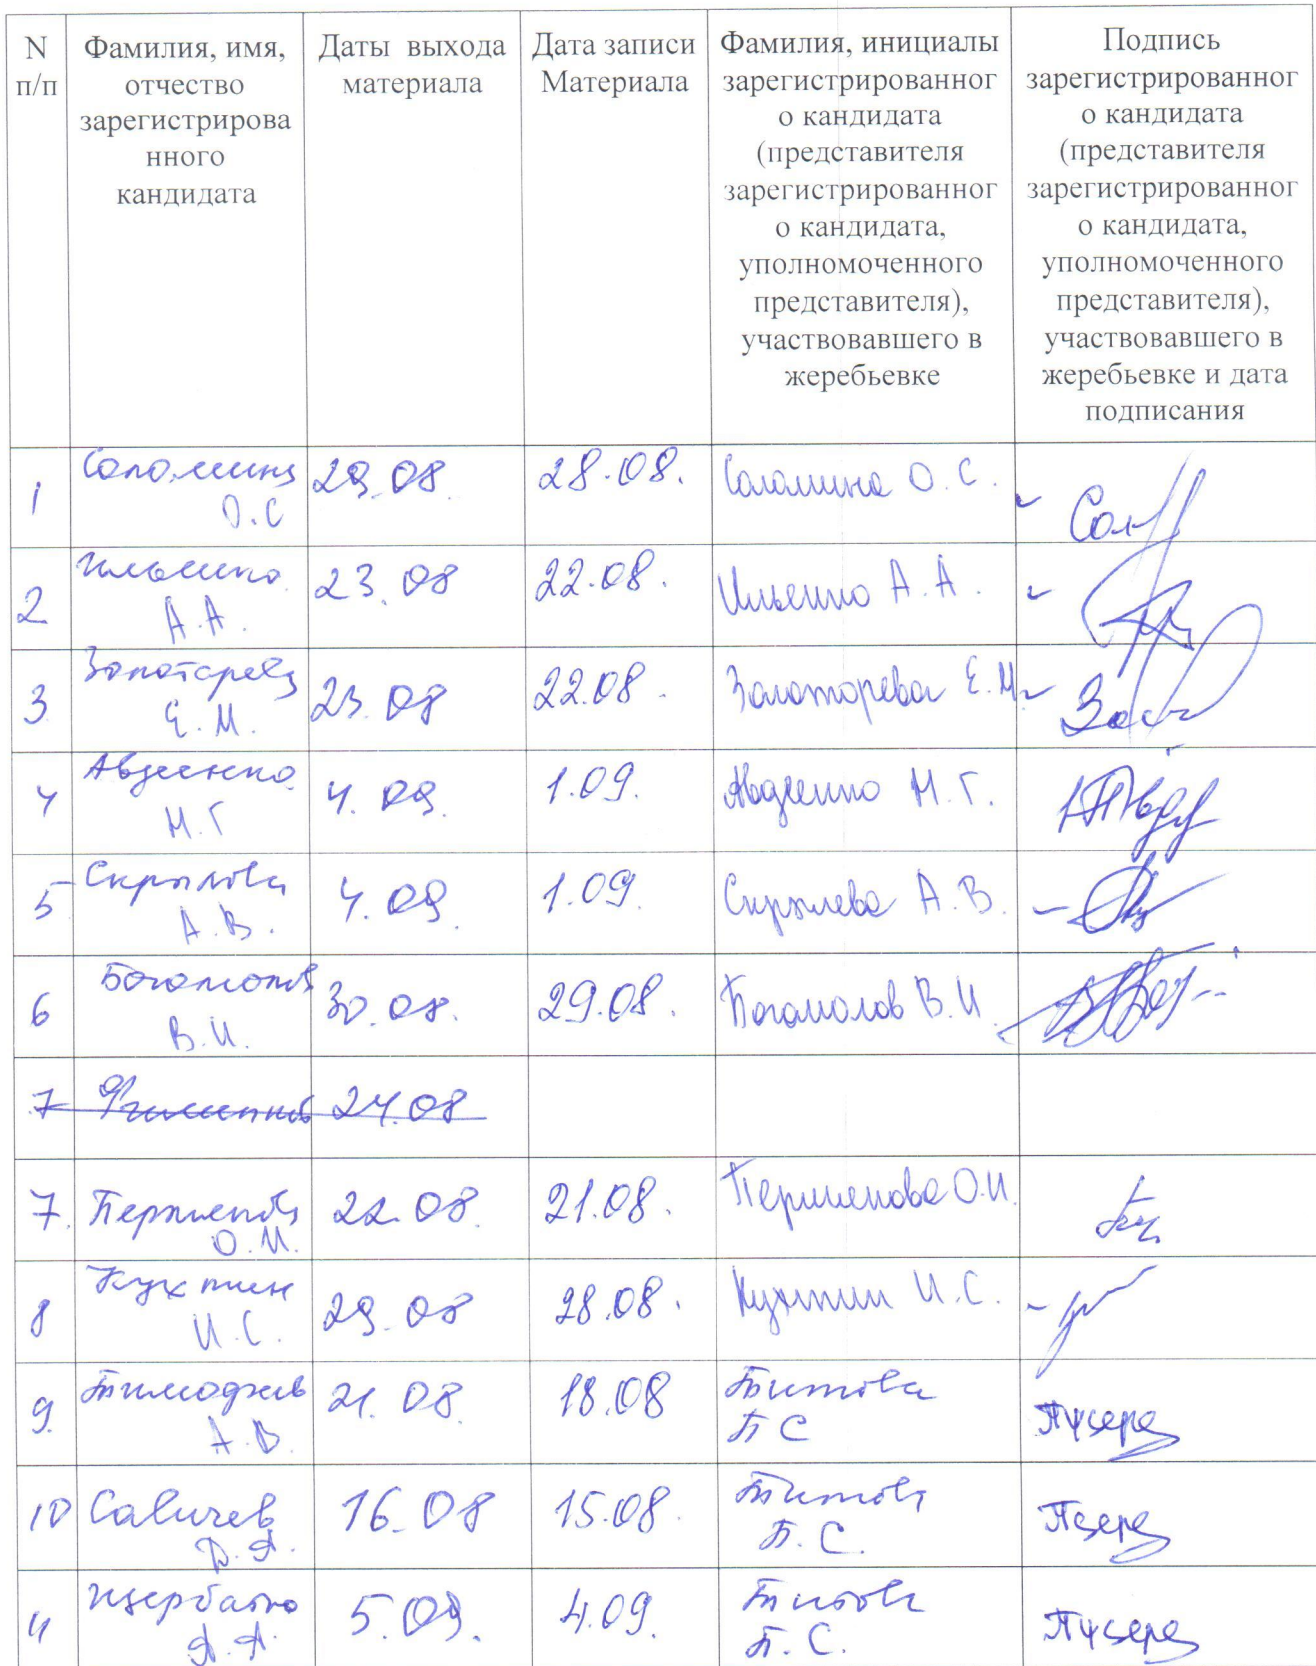 N п/п
Фамилия, имя, отчество зарегистрирова нного кандидата
Даты выхода материала
Дата записи Материала
Фамилия, инициалы зарегистрированног о кандидата (представителя зарегистрированног о кандидата, уполномоченного представителя), участвовавшего в жеребьевке
Подпись зарегистрированног о кандидата (представителя зарегистрированног о кандидата, уполномоченного представителя), участвовавшего в жеребьевке и дата подписания
1 Соломина О.С 29.08 28.08. Соломина О.С. Сол
2 Ильенко А.А. 23.08 22.08. Ильенко А.А.
3 Золотарева Е.М. 23.08 22.08. Золоторева Е.М.
4 Авдеенко Н.Г 4.09. 1.09. Авдеенко Н.Г.
5 Скрылева А.В. 4.09. 1.09. Скрылева А.В.
6 Богомолов В.И. 30.08. 29.08. Богомолов В.И
7 24.08
7. Перменова О.И. 22.08. 21.08. Перменова О.И.
8 Кухтин И.С. 29.08 28.08. Кухтин И.С.
9. А.В. 21.08. 18.08 Титова П С
10 Савичев Д.А. 16.08 15.08. Титова П.С.
11 Щербатко А.А. 5.09. 4.09. Титова П.С.